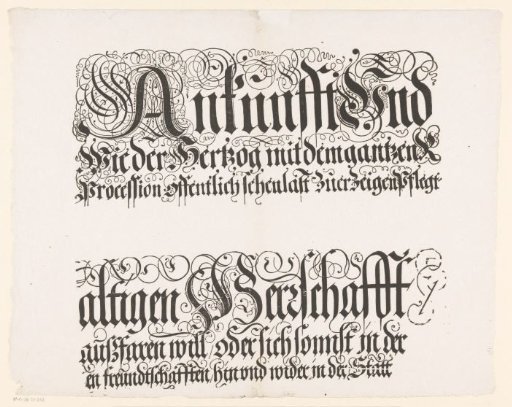 Ankunfft Und
Wie der Hertzog mit dem gantzen
Procession offentlich sehen last Zuerzeigen Pflegt
altigen Herrschafft
außfaren will oder sich sonnst in der
en freundtschafften hin vnd wider in der Statt